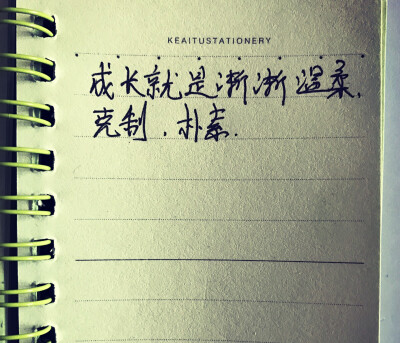 KEAITUSTATIONERY
成长就是渐渐温柔,
克制,朴素.